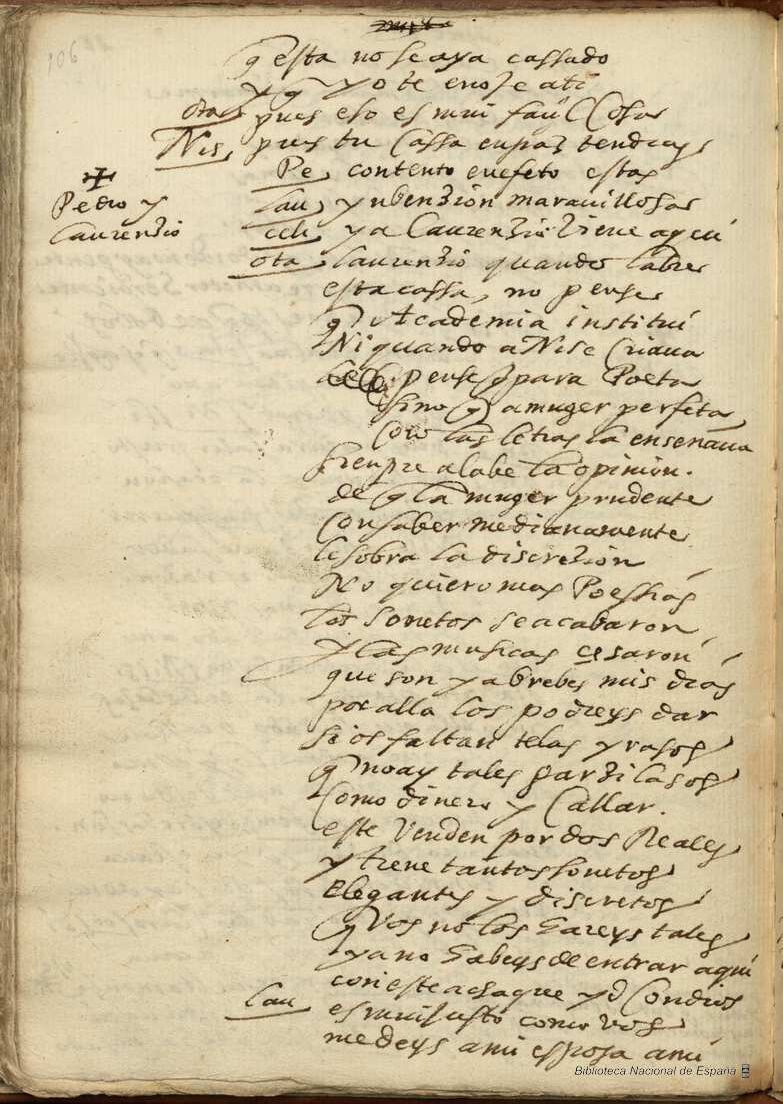 106
q esta no se aya cassado
y q yo te enoje a ti
ota pues eso es mui façil Cosa
Nis pues tu Cassa en paz tendras
Pe contento en efeto estas
+
Pedro y
Laurenzio
Lau y ynbenzion maravillosa
celi ya Laurenzio viene aqui
ota Laurenzio quando labre
esta cassa, no pense
q Academia institui
Ni quando a Nise Criava
pense q para Poeta
sino q a muger perfeta
Con las letras la enseñava
sienpre alabe la opinion.
de q la muger prudente
Con saber medianamente
le sobra la discrezion
No quiero mas Poessias
los sonetos se acabaron
y las musicas cesaron
que son ya brebes mis dias
por alla los podreys dar
si os faltan telas y rasos
q no ay tales garzilasos
Como dinero y Callar.
este Venden por dos Reales
y tiene tantos sonetos
elegantes y discretos
q Vos no los hareys tales
ya no habeys de entrar aqui
con este achaque yd Con dios
Lau es mui justo como vos
me deys a mi esposa a mi
Biblioteca Nacional de España